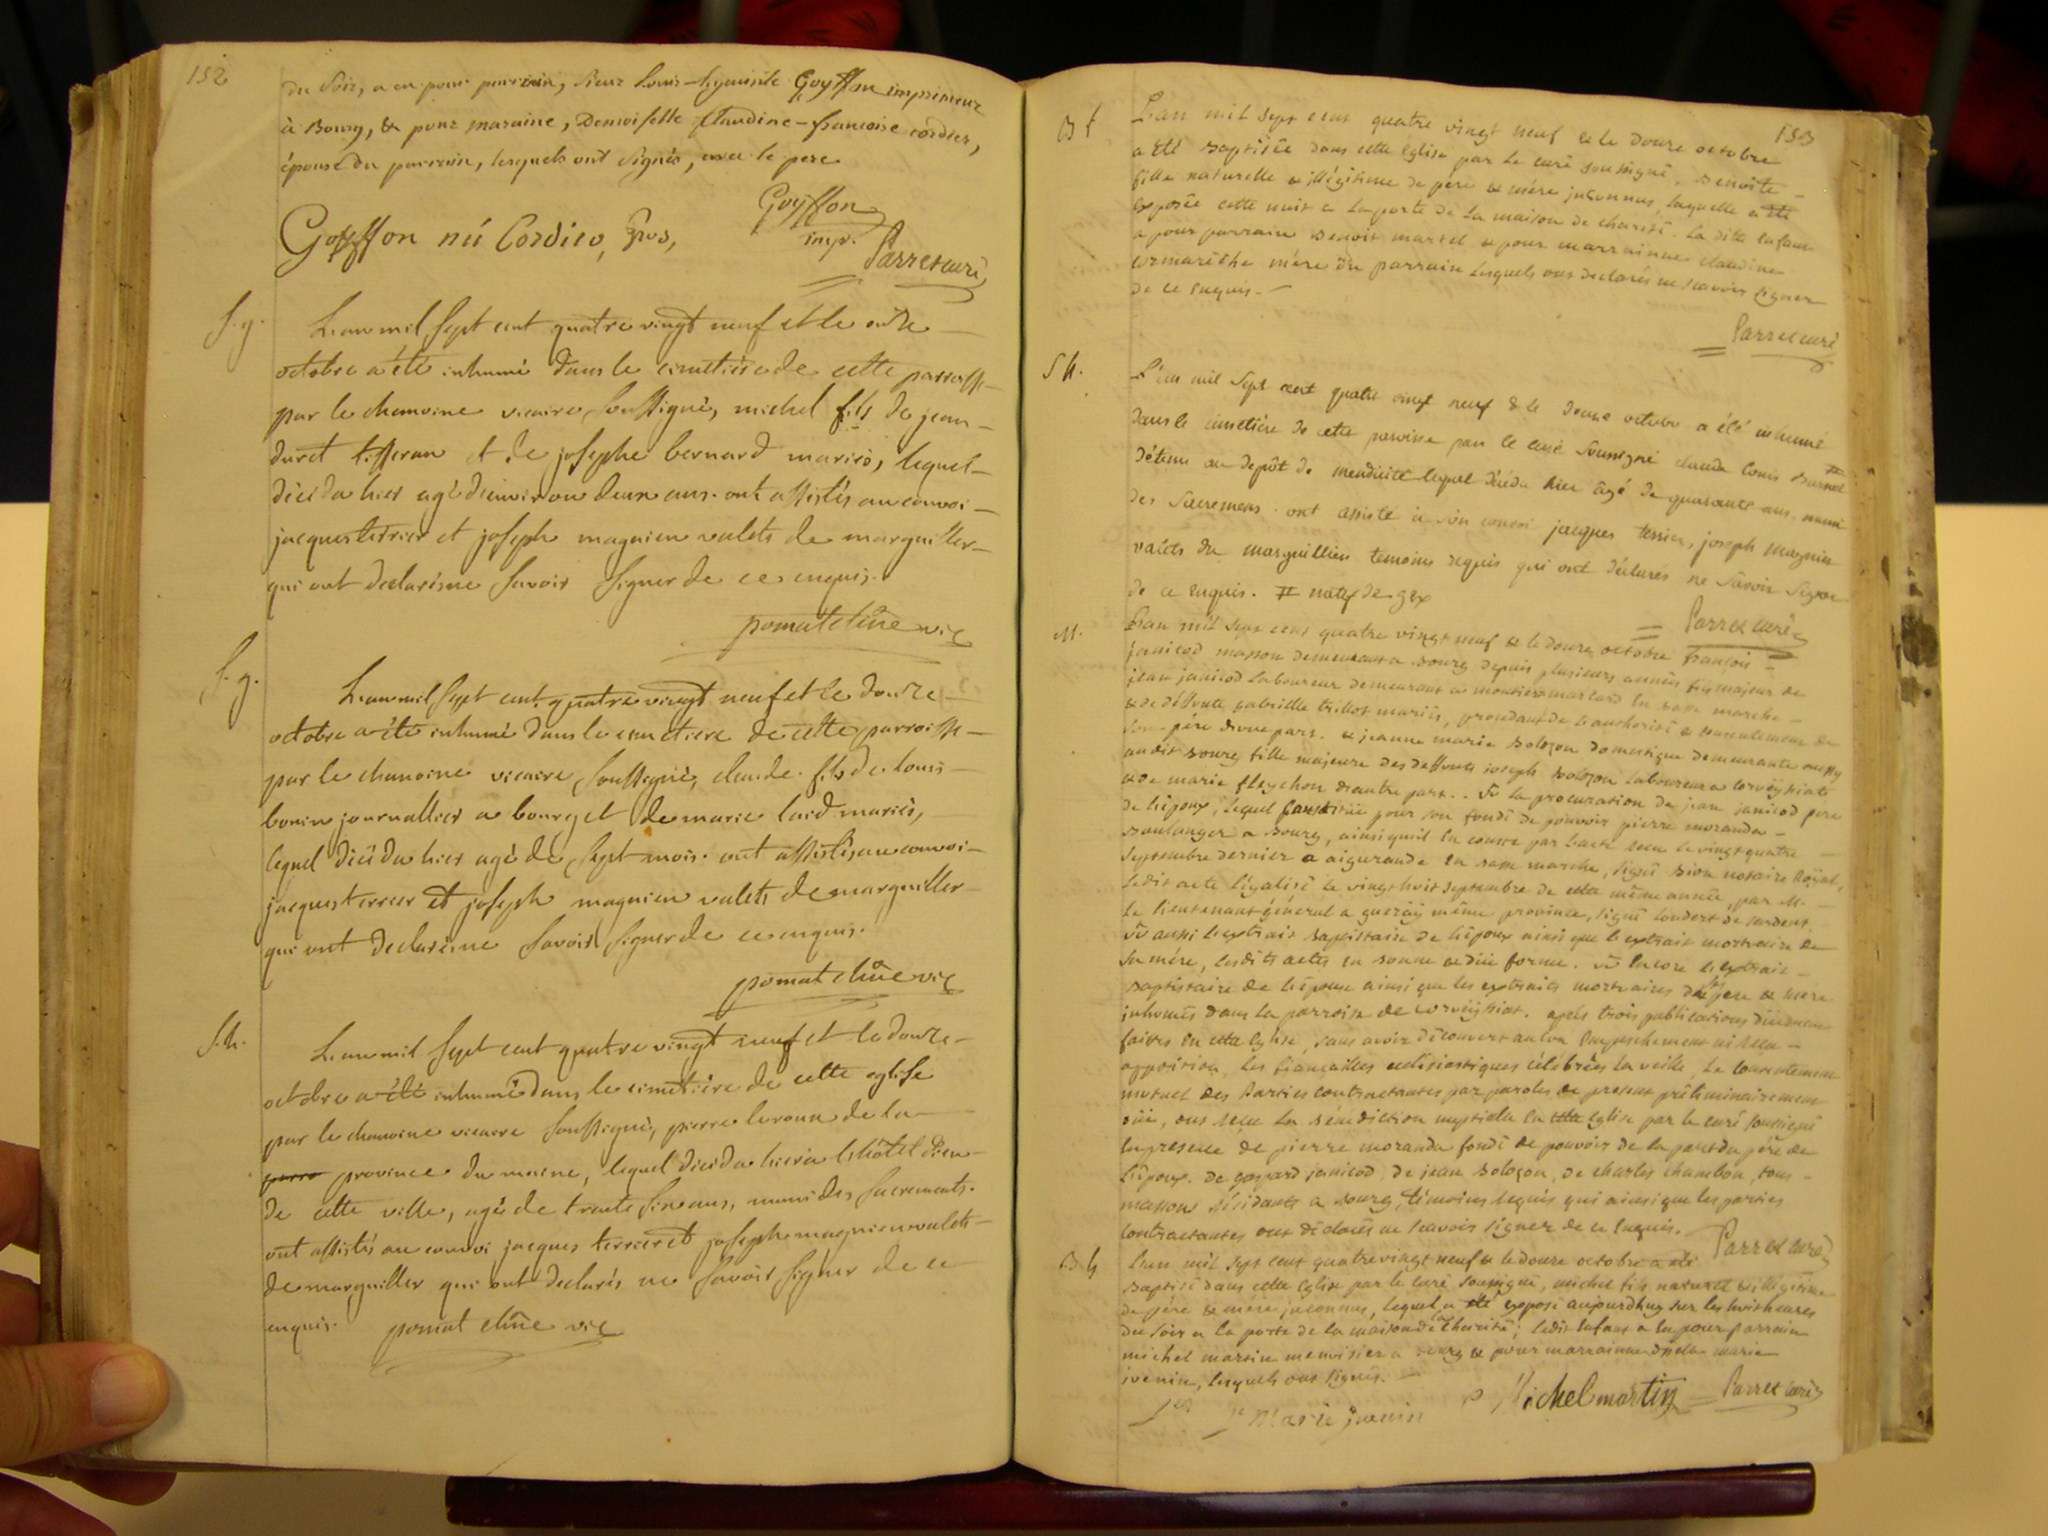 152
du soir, a eu pour parrain, sieur Louis-hyacinthe Goyffon imprimeur
à Bourg, & pour maraine, Demoiselle Claudine-francoise cordier,
épouse du parrain, lesquels ont signés, avec le pere
Goyffon
Goyffon né Cordier,
impr.
Parret curé
S. g.
L'an mil sept cent quatre vingt neuf et le onze
octobre a été inhumé dans le cimetiere de cette parroisse
par le chanoine vicaire soussigné, michel fils de jean
duret tisseran et de josephe bernard mariés, lequel
décéda hier agé d'environ deux ans. ont assistés au convoi
jacques terrier et joseph magnien valets de marguiller
qui ont declaré ne savoir signer de ce enquis.
pomat chne vic
S. g.
L'an mil sept cent quatre vingt neuf et le douze
octobre a été inhumé dans le cimetiere de cette parroisse
par le chanoine vicaire soussigné, claude fils de Louis
bonin journallier a bourg et de marie laid mariés,
lequel décéda hier agé de sept mois. ont assistés au convoi
jacques terrier et joseph magnien valets de marguiller
qui ont declaré ne savoir signer de ce enquis.
pomat chne vic
S. h.
L'an mil sept cent quatre vingt neuf et le douze
octobre a été inhumé dans le cimetiere de cette eglise
par le chanoine vicaire soussigné, pierre leroux de la
province du maine, lequel décéda hier a l'hôtel Dieu
de cette ville, agé de trente six ans, muni des sacrements.
ont assistés au convoi jacques terrier et joseph magnien valets
de marguiller qui ont declarés ne savoir signer de ce
enquis. pomat chne vic
153
B f
L'an mil sept cent quatre vingt neuf & le douze octobre
a été baptisée dans cette eglise par le curé soussigné, Benoite
fille naturelle & illégitime de père & mère inconnus, laquelle a été
exposée cette nuit a la porte de la maison de charité. la dite enfant
a pour parrain Benoit martel & pour marrainne claudine
cormarèche mère du parrain lesquels ont declarés ne scavoir signer
de ce enquis.
Parret curé
S h.
L'an mil sept cent quatre vingt neuf & le douze octobre a été inhumé
dans le cimetière de cette paroisse par le curé soussigné claude louis
détenu au depôt de mendicité lequel décéda hier âgé de quarante ans, muni
des sacremens. ont assisté à son convoi jacques terrier, joseph magnien
valets du marguillier temoins requis qui ont déclarés ne savoir signer
de ce enquis. # natif de gex
Parret curé
M.
L'an mil sept cent quatre vingt neuf & le douze octobre françois
janicod masson demeurant a bourg depuis plusieurs années fils majeur de
jean janicod laboureur demeurant a en basse marche
& de déffunte gabrielle mariés, procedant de l'authorité & consentement de
son père d'une part. & jeanne marie bolozon domestique demeurante aussy
audit bourg fille majeure des deffunts joseph bolozon laboureur a
& de marie d'autre part. Vû la procuration de jean janicod père
de l'époux, lequel constitué pour son fondé de pouvoir pierre moranda
boulanger a bourg, ainsi qu'il en conste par l'acte recu le vingt quatre
septembre dernier a aigurande en basse marche, signé notaire Royal,
ledit acte légalisé le vingt huit septembre de cette même année, par M.
le lieutenant général a même province, signé
Vû aussi l'extrait baptistaire de l'époux ainsi que l'extrait mortuaire de
sa mère, lesdits actes en bonne & düe forme. vû encore l'extrait
baptistaire de l'épouse ainsi que les extraits mortuaires de ses père & mère
inhumés dans la parroisse de. après trois publications düement
faites en cette eglise, sans avoir découvert aucun empeschement ni reçu
opposition, les fiançailles ecclésiastiques célébrées la veille, le consentement
mutuel des Parties contractantes par paroles de present préliminairement
oüi, ont reçu la bénédiction nuptiale en cette eglise par le curé soussigné
en presence de pierre moranda fondé de pouvoir de la part du père de
l'époux. de gaspard janicod, de jean bolozon, de charles chambon, tous
masson résidants a bourg, témoins requis qui ainsi que les parties
contractantes ont déclarés ne scavoir signer de ce enquis.
Parret curé
B g
L'an mil sept cent quatre vingt neuf & le douze octobre a été
baptisé dans cette eglise par le curé soussigné, michel fils naturel & illégitime
de père & mère inconnus, lequel a été exposé aujourdhuy sur les huit heures
du soir a la porte de la maison de la charité; ledit enfant a eu pour parrain
michel martin menuisier a bourg & pour marrainne dselle marie
juenin, lesquels ont signés.
Marie juenin
Michel martin
Parret curé